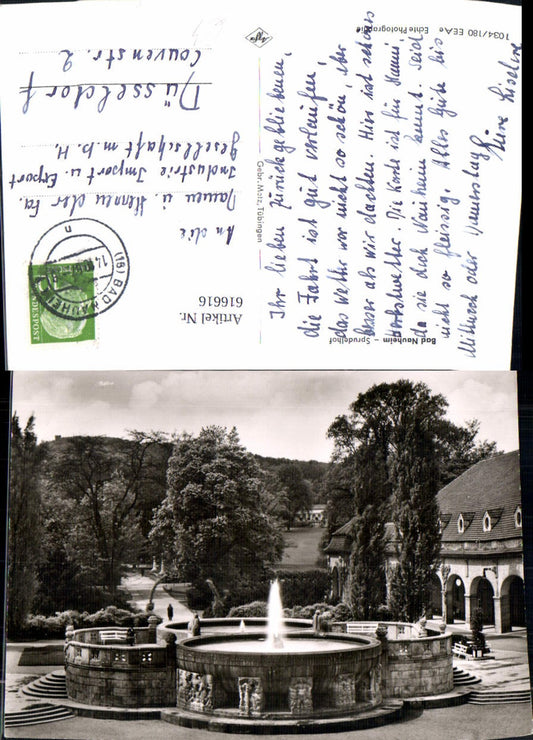 Ihr lieben Zurückgebliebenen,
die Fahrt ist gut verlaufen,
das Wetter war nicht so schön, aber
besser als wir dachten. Hier ist schönes
Herbstwetter. Die Karte ist für Mammi,
da sie doch Nauheim kennt. Seid
nicht so fleissig. Alles Gute bis
Mittwoch oder Donnerstag
Eure Liselore
Bad Nauheim – Sprudelhof
1034/180 EEA/e Echte Photographie
Gebr. Metz, Tübingen
Agfa
Artikel Nr.
6166116
An die
Damen u. Herren der Fa.
Industrie Import u. Export
Gesellschaft m.b.H.
Düsseldorf
Couvenstr. 2
(16) BAD NAUHEIM
14.10.
n
DEUTSCHE BUNDESPOST